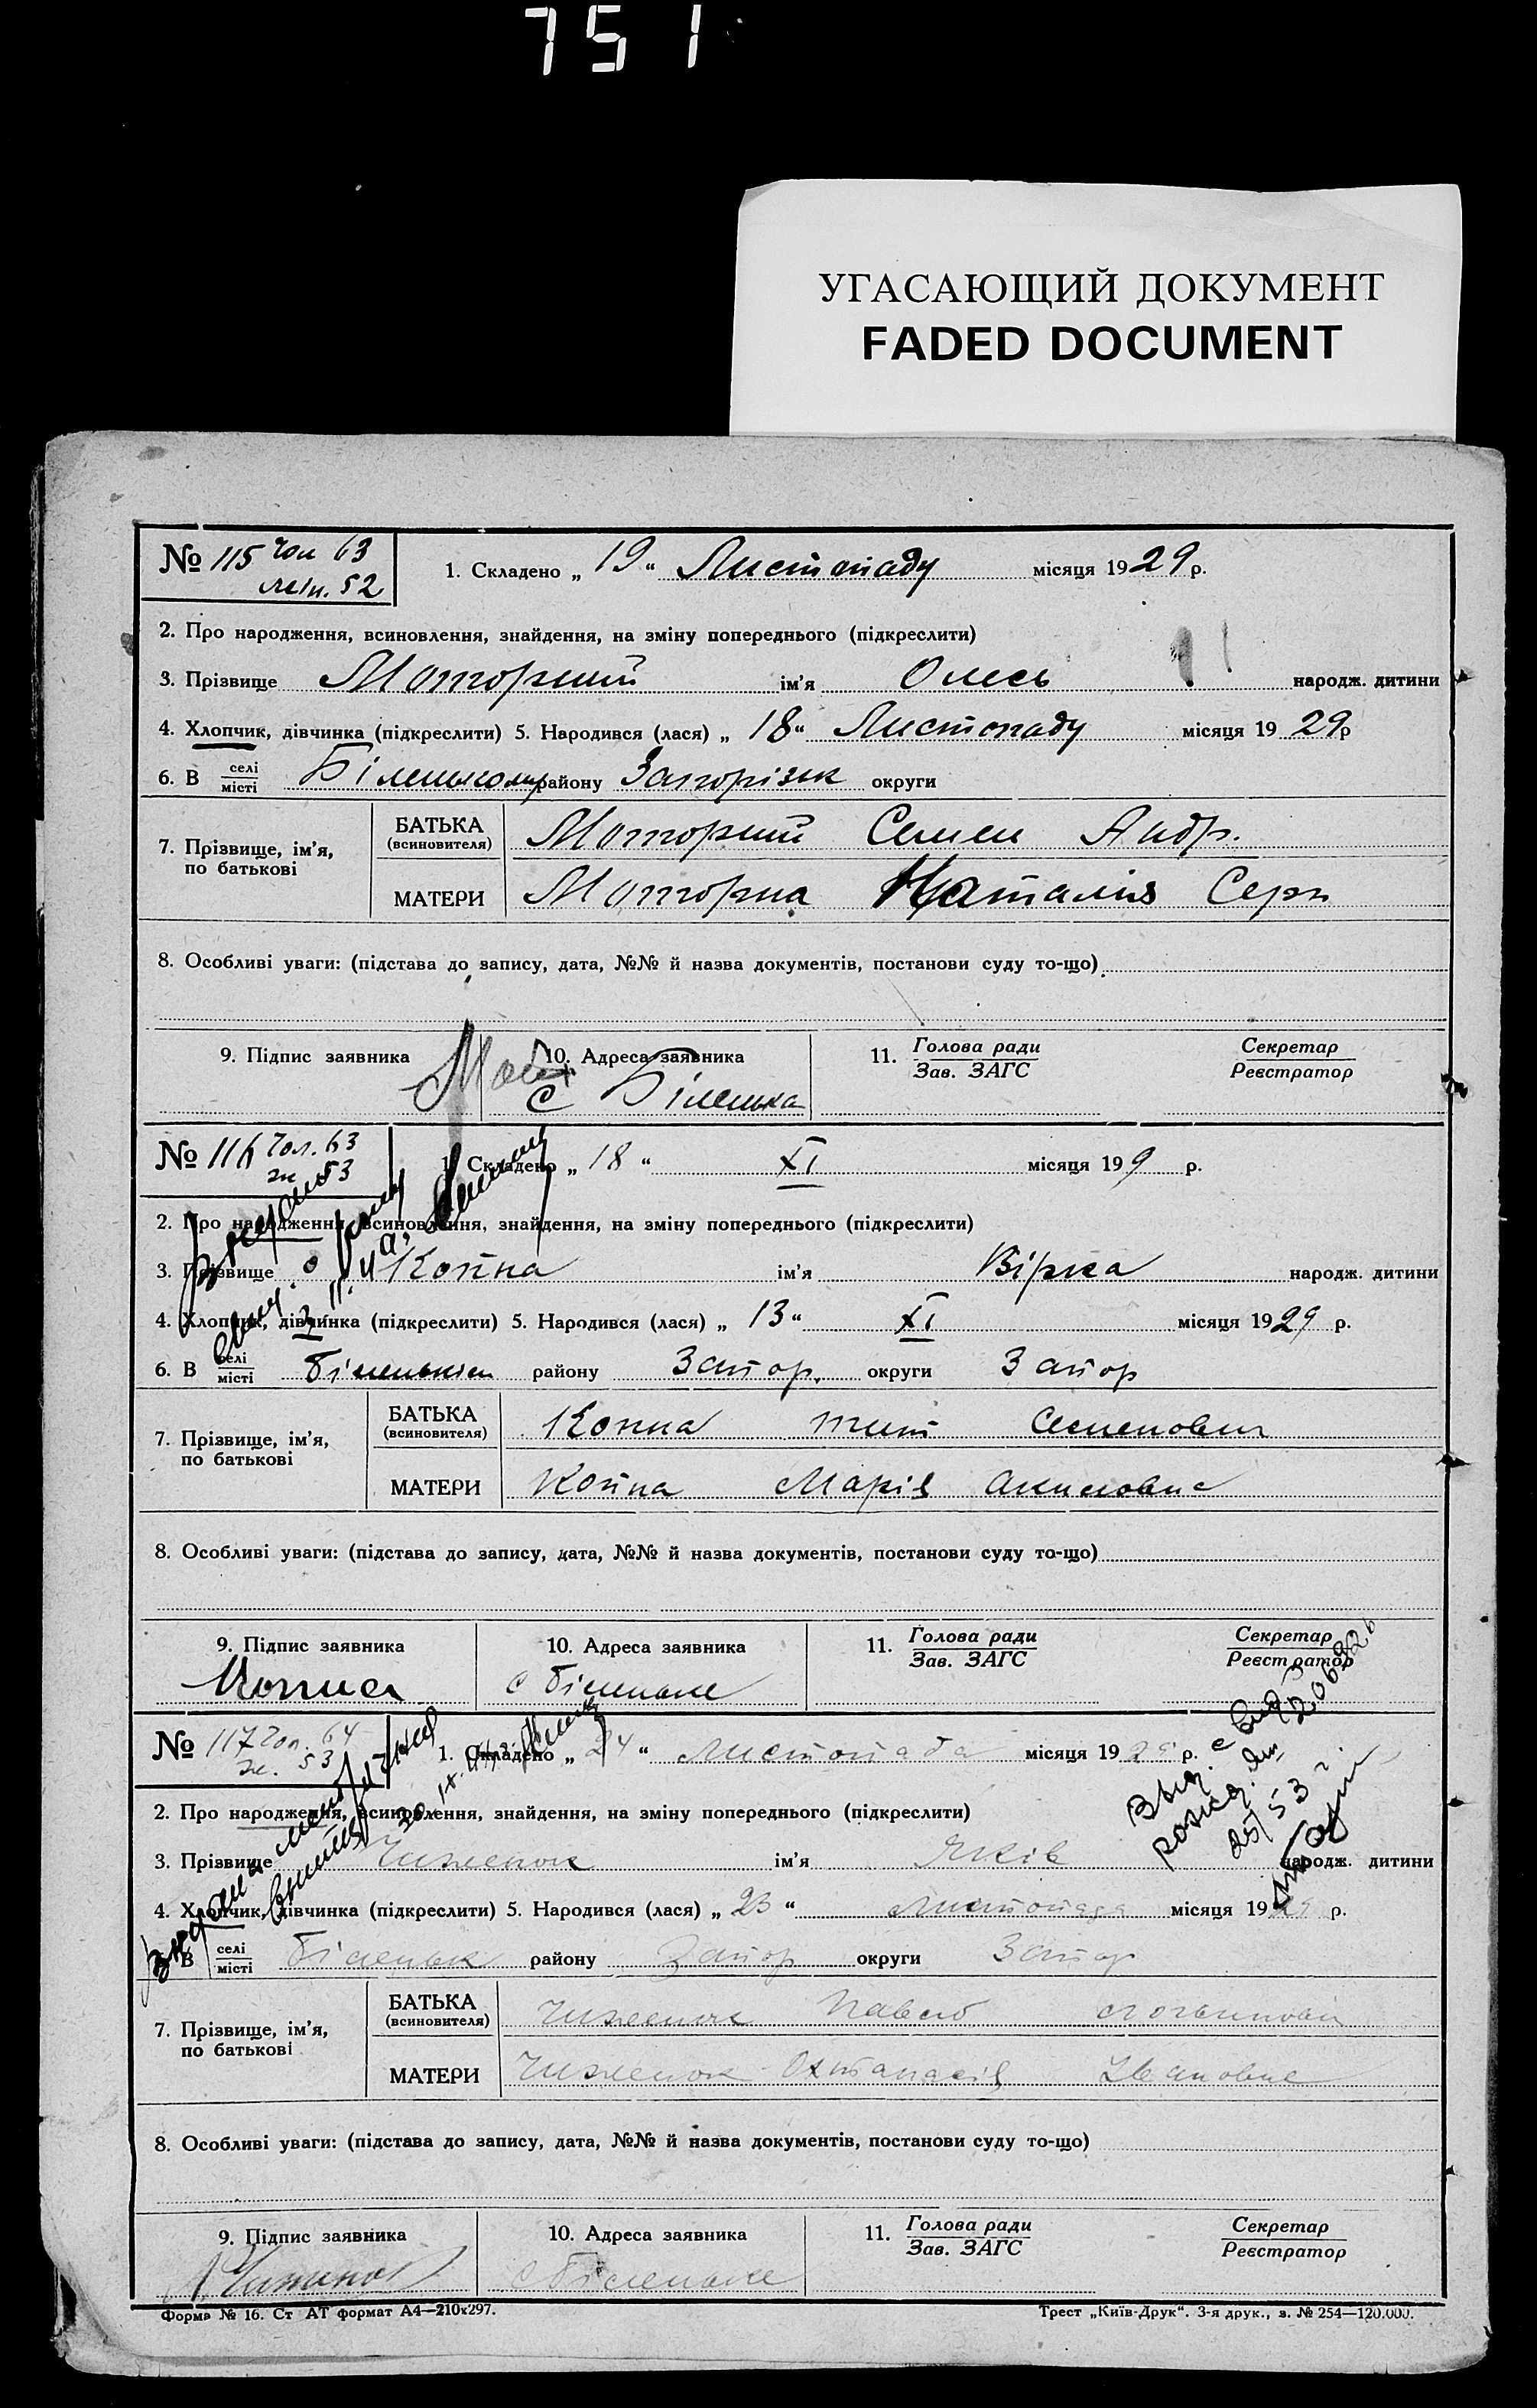 751
УГАСАЮЩИЙ ДОКУМЕНТ
FADED DOCUMENT
№ 115 чол 63
жін. 52
1. Складено „ 19 “ Листопаду місяця 1929 р.
2. Про народження, всиновлення, знайдення, на зміну попереднього (підкреслити)
3. Прізвище Моторний ім’я Олесь народж. дитини
4. Хлопчик, дівчинка (підкреслити) 5. Народився (лася) „ 18 “ Листопаду місяця 19 29 р
6. В селі/місті району Запорізьк округи
7. Прізвище, ім’я, по батькові
БАТЬКА (всиновителя) Моторний Семен Андр.
МАТЕРИ Моторна Наталія Серг
8. Особливі уваги: (підстава до запису, дата, №№ й назва документів, постанови суду то-що)
9. Підпис заявника 10. Адреса заявника 11. Голова ради/Зав. ЗАГС Секретар/Реєстратор
С Біленька
№ 116 чол. 63
ж 53
1. Складено „ 18 “ XI місяця 19 9 р.
2. Про народження, всиновлення, знайдення, на зміну попереднього (підкреслити)
3. Прізвище Копна ім’я Вірка народж. дитини
4. Хлопчик, дівчинка (підкреслити) 5. Народився (лася) „ 13 “ XI місяця 19 29 р.
6. В селі/місті району Запор. округи Запор
7. Прізвище, ім’я, по батькові
БАТЬКА (всиновителя) Копна Тит Семенович
МАТЕРИ Копна Марія Акимовна
8. Особливі уваги: (підстава до запису, дата, №№ й назва документів, постанови суду то-що)
9. Підпис заявника 10. Адреса заявника 11. Голова ради/Зав. ЗАГС Секретар/Реєстратор
Копна с Біленьке
№ 117 чол. 64
ж. 53
1. Складено „ 24 “ Листопада місяця 19 29 р.
2. Про народження, всиновлення, знайдення, на зміну попереднього (підкреслити)
3. Прізвище Чиженок ім’я Яків народж. дитини
4. Хлопчик, дівчинка (підкреслити) 5. Народився (лася) „ 23 “ Листопада місяця 19 29 р.
6. В селі/місті Біленьк району Запор округи Запор
7. Прізвище, ім’я, по батькові
БАТЬКА (всиновителя) Чиженок Павло
МАТЕРИ Чиженок Ивановна
8. Особливі уваги: (підстава до запису, дата, №№ й назва документів, постанови суду то-що)
9. Підпис заявника 10. Адреса заявника 11. Голова ради/Зав. ЗАГС Секретар/Реєстратор
с Біленьке
Форма № 16. Ст АТ формат А4—210х297. Трест „Київ-Друк“. 3-я друк., з. № 254—120.000.